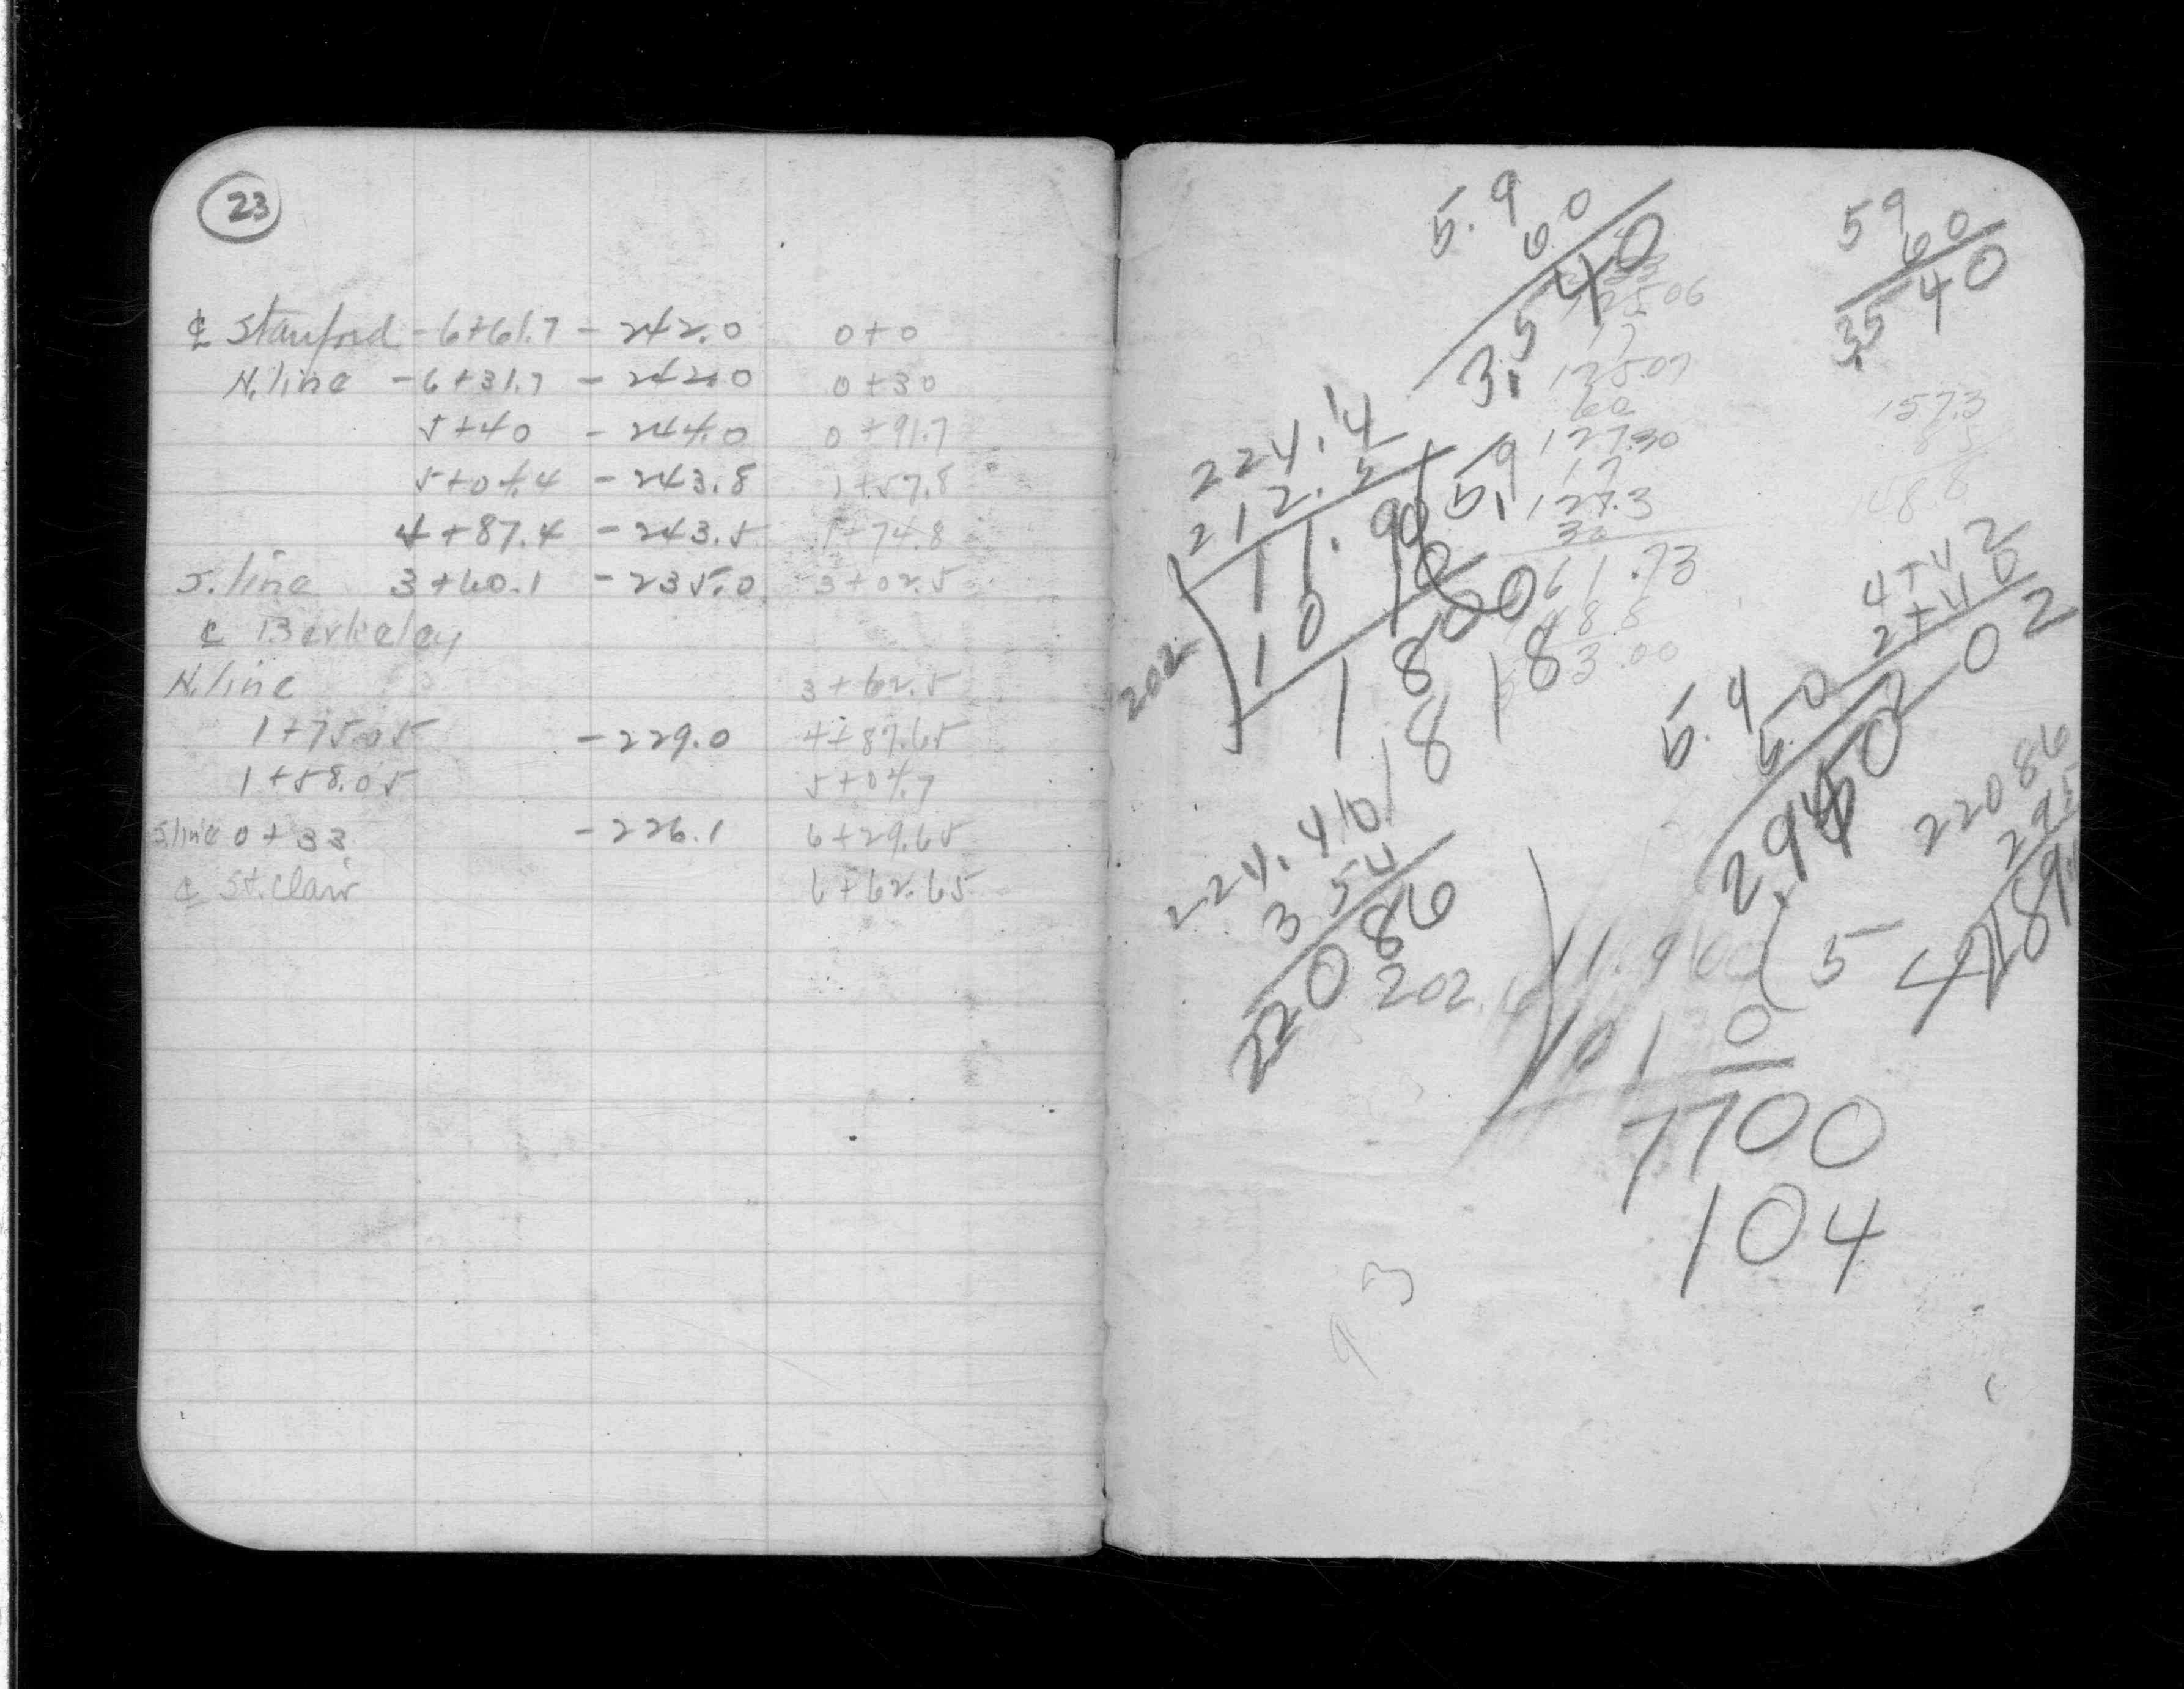 23
℄ Stanford - 6+61.7 - 242.0 0+0
N. line - 6+31.7 - 242.0 0+30
5+40 - 244.0 0+91.7
5+04.4 - 243.8 1+57.8
4+87.4 - 243.5 1+74.8
S. line 3+60.1 - 235.0 3+02.5
℄ Berkeley
N. line 3+62.5
1+75.05 - 229.0 4+87.65
1+58.05 5+04.7
S. line 0+33 - 226.1 6+29.65
℄ St. Clair 6+62.65
5.9
60
3.540
59
60
3.540
125.06
17
125.07
60
127.30
17
127.3
30
61.73
88.5
3.00
157.3
85
224.4
212.5
11.90
5.9
202
10 10
1800
18 18
224.40
354
22086
4+42
2+40
202
5.9
50
2950
22086
295
202
11.900
5
1010
7700
104
9 3